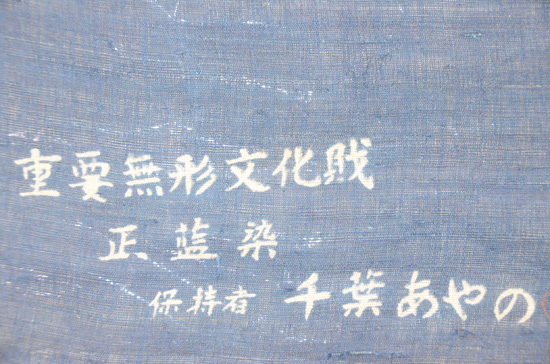 重要無形文化財
正藍染
保持者 千葉あやの